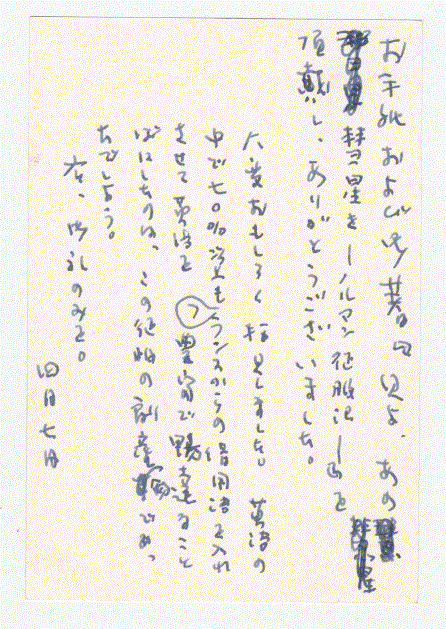 お手紙および御著『見よ、あの
彗星を―ノルマン征服記―』を
頂戴し、ありがとうございました。
大変おもしろく拝見しました。英語の
中で七〇%以上もフランスからの借用語を入れ
させて英語を豊富で暢達なること
ばにしたのは、この征服の副産物であっ
たでしょう。
右、御礼のみを。
四月七日